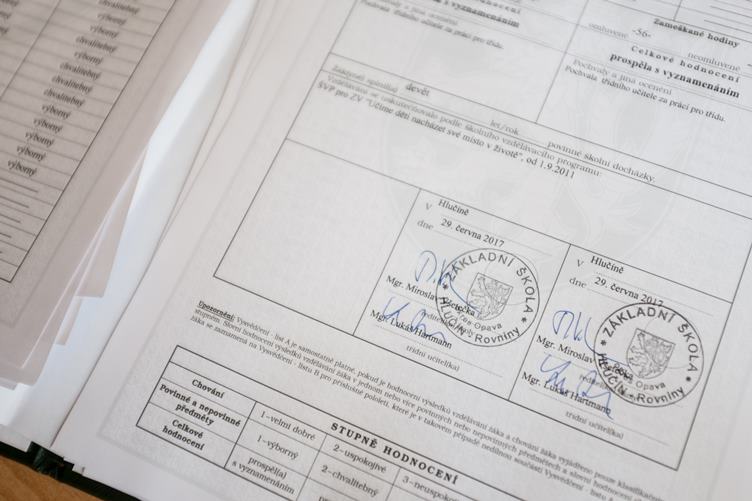 chvalitebný
chvalitebný
výborný
výborný
chvalitebný
chvalitebný
chvalitebný
výborný
výborný
výborný
výborný
s vyznamenáním
Pochvala třídního učitele za práci pro třídu.
Zameškané hodiny
omluvené -56- neomluvené
Celkové hodnocení
prospěl/a s vyznamenáním
Pochvaly a jiná ocenění
Pochvala třídního učitele za práci pro třídu.
Žák(yně) splnil(a) devět let/rok povinné školní docházky.
Vzdělávání se uskutečňovalo podle školního vzdělávacího programu:
ŠVP pro ZV "Učíme děti nacházet své místo v životě", od 1.9.2011
V Hlučíně
dne 29. června 2017
Mgr. Miroslav
ředitel
Mgr. Lukáš Hartmann
třídní učitel(ka)
ZÁKLADNÍ ŠKOLA
okres Opava
HLUČÍN - Rovniny
V Hlučíně
dne 29. června 2017
Mgr. Miroslav
Mgr. Lukáš Hartmann
třídní učitel(ka)
ZÁKLADNÍ ŠKOLA
okres Opava
HLUČÍN - Rovniny
Upozornění: Vysvědčení - list A je samostatně platné, pokud je hodnocení výsledků vzdělávání žáka a chování žáka vyjádřeno pouze
stupněm. Slovní hodnocení výsledků vzdělávání žáka v jednom nebo více povinných nebo nepovinných předmětech a slovní hodnocení
žáka se zaznamená na Vysvědčení - listu B pro příslušné pololetí, které je v takovém případě nedílnou součástí Vysvědčení
STUPNĚ HODNOCENÍ
Chování 1-velmi dobré 2-uspokojivé 3-neuspokojivé
Povinné a nepovinné předměty 1-výborný 2-chvalitebný
Celkové hodnocení prospěl(a) s vyznamenáním